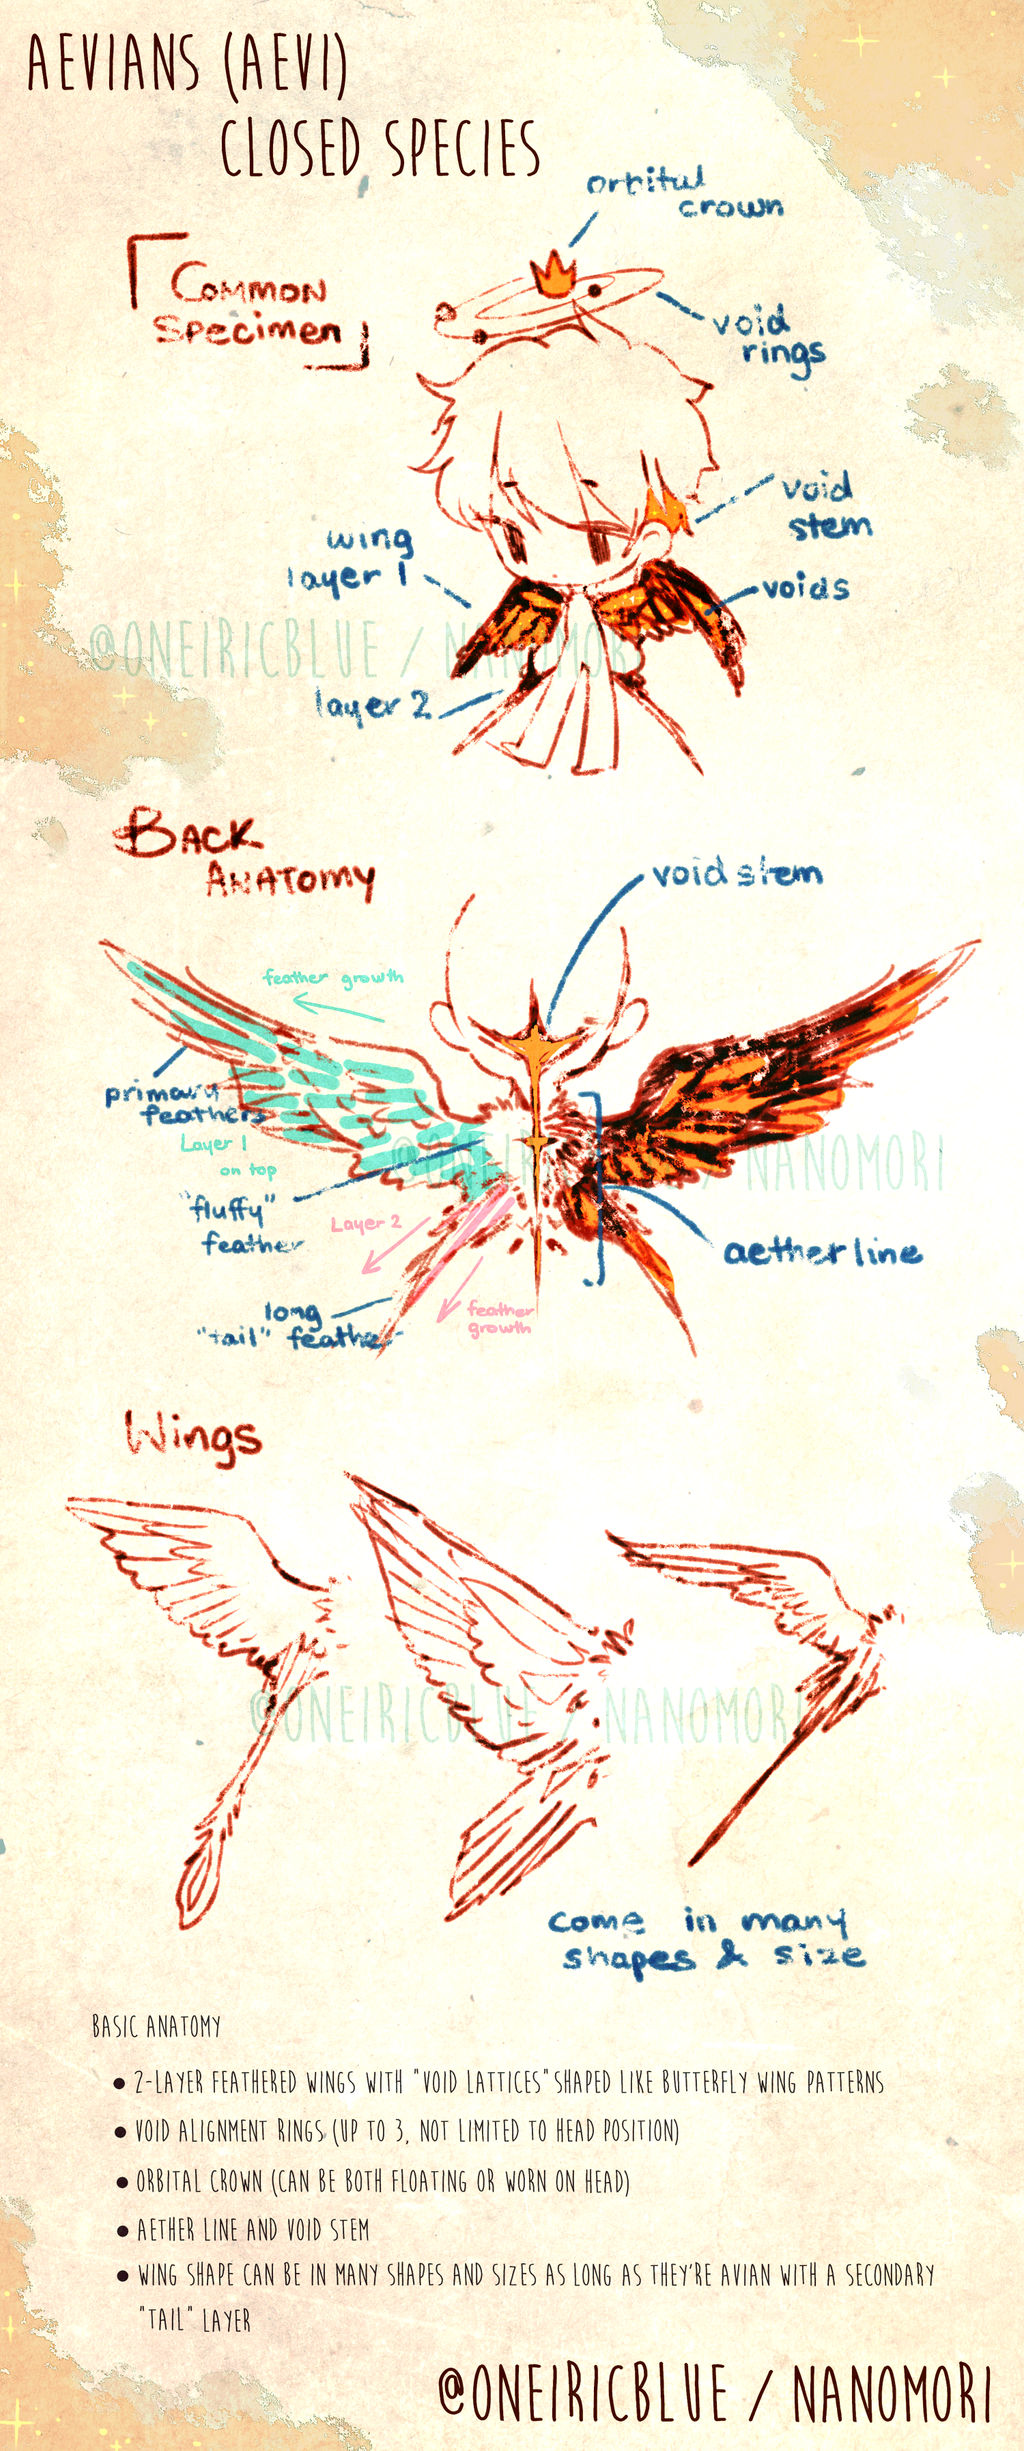 AEVIANS (AEVI)
CLOSED SPECIES
orbital
crown
Common
Specimen
void
rings
void
stem
wing
layer 1
voids
@ONEIRICBLUE / NANOMORI
layer 2
Back
Anatomy
void stem
feather growth
primary
feathers
Layer 1
on top
@ONEIRICBLUE / NANOMORI
"fluffy"
feather
Layer 2
aether line
long
"tail" feather
feather
growth
Wings
@ONEIRICBLUE / NANOMORI
come in many
shapes & size
BASIC ANATOMY
● 2-LAYER FEATHERED WINGS WITH "VOID LATTICES" SHAPED LIKE BUTTERFLY WING PATTERNS
● VOID ALIGNMENT RINGS (UP TO 3, NOT LIMITED TO HEAD POSITION)
● ORBITAL CROWN (CAN BE BOTH FLOATING OR WORN ON HEAD)
● AETHER LINE AND VOID STEM
● WING SHAPE CAN BE IN MANY SHAPES AND SIZES AS LONG AS THEY'RE AVIAN WITH A SECONDARY
"TAIL" LAYER
@ONEIRICBLUE / NANOMORI